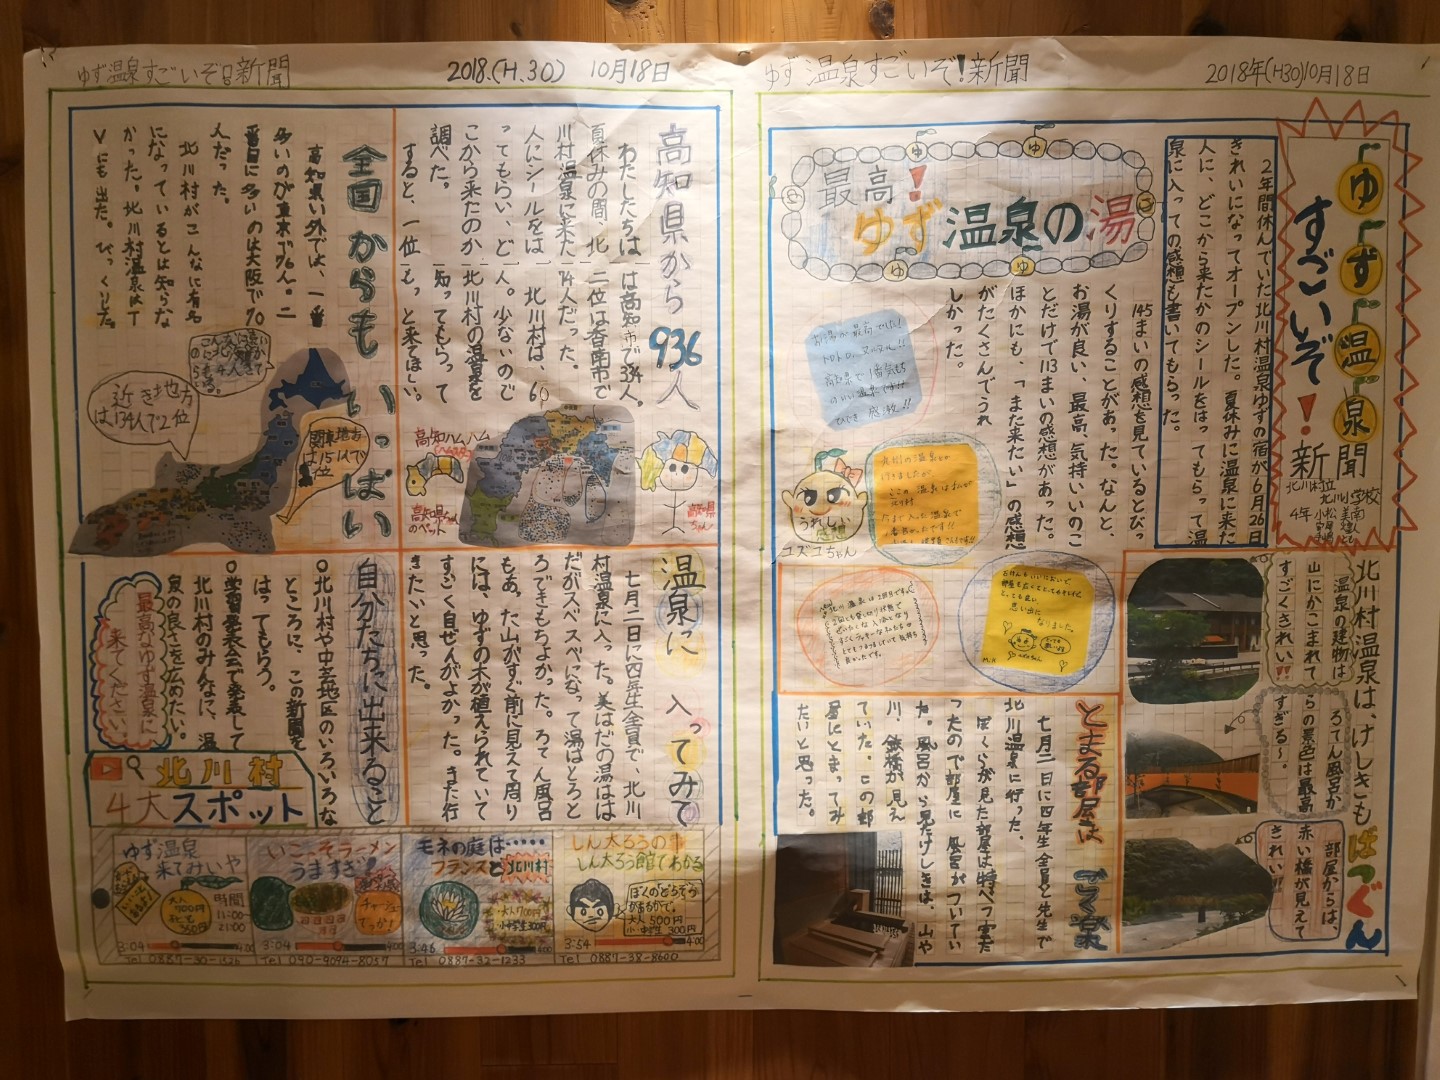 ゆず温泉すごいぞ!新聞
2018年(H30)10月18日
ゆず温泉
すごいぞ!
新聞
北川村立
北川小学校
4年
２年間休んでいた北川村温泉ゆずの宿が６月26日
きれいになってオープンした。夏休みに温泉に来た
人に、どこから来たかのシールをはってもらって温
泉に入っての感想も書いてもらった。
最高!
ゆず温泉の湯
145まいの感想を見ているとびっ
くりすることがあった。なんと、
お湯が良い、最高、気持いいのこ
とだけで113まいの感想があった。
ほかにも、「また来たい」の感想
がたくさんでうれ
しかった。
お湯が最高でした!
うれしい
ユズコちゃん
思い出に
なりました。
北川村温泉は、けしきも
ばつぐん
温泉の建物は
山にかこまれて
すごくきれい!!
ろてん風呂か
らの景色は最高
すぎる〜。
部屋からは、
赤い橋が見えて
きれい!!
とまる部屋は
ごく楽
七月二日に四年生全員と先生で
北川温泉に行った。
ぼくらが見た部屋は特べつ室だ
ったので部屋に風呂がついてい
た。風呂から見たけしきは、山や
川、鉄橋が見え
ていた。この部
屋にとまってみ
たいと思った。
ゆず温泉すごいぞ!新聞
2018.(H.30) 10月18日
高知県から936人
わたしたちは
夏休みの間、北
川村温泉に来た
人にシールをは
ってもらい、ど
こから来たのか
調べた。
すると、一位
は高知市で334人。
二位は香南市で
74人だった。
北川村は、6
人。少ないので
北川村の温泉を
知ってもらって
もっと来てほしい。
高知ハムハム
高知県ちゃん
のペット
高知県
ちゃん
全国からもいっぱい
高知県い外では、一番
多いのが東京で76人。二
番目に多いのは大阪で70
人だった。
北川村がこんなに有名
になっているとは知らな
かった。北川村温泉はT
Vにも出た。びっくりした。
近き地方
は134人で2位
関東地方
温泉に入ってみて
七月二日に四年生全員で、北川
村温泉に入った。美はだの湯はは
だがスベスベになって湯はとろと
ろできもちよかった。ろてん風呂
もあった山がすぐ前に見えて周り
には、ゆずの木が植えられていて
すごく自ぜんがよかった。また行
きたいと思った。
自分たちに出来ること
○北川村や中芸地区のいろいろな
ところに、この新聞を
はってもらう。
○学習発表会で発表して
北川村のみんなに、温
泉の良さを広めたい。
最高なゆず温泉に
来てください。
北川村
4大スポット
ゆず温泉
来てみいや
大人
700円
350円
時間
11:00
21:00
3:04
4:00
いごっそラーメン
うますぎ!
チャーシュー
でっかっ!
3:04
4:00
Tel 090-9094-8057
モネの庭は……
フランスと北川村
大人700円
小中学生300円
3:46
4:00
Tel 0887-32-1233
しん太ろうの事
しん太ろう館でわかる
ぼくのどうぞう
があるがで。
大人500円
小・中学生300円
3:54
4:00
Tel 0887-38-8600